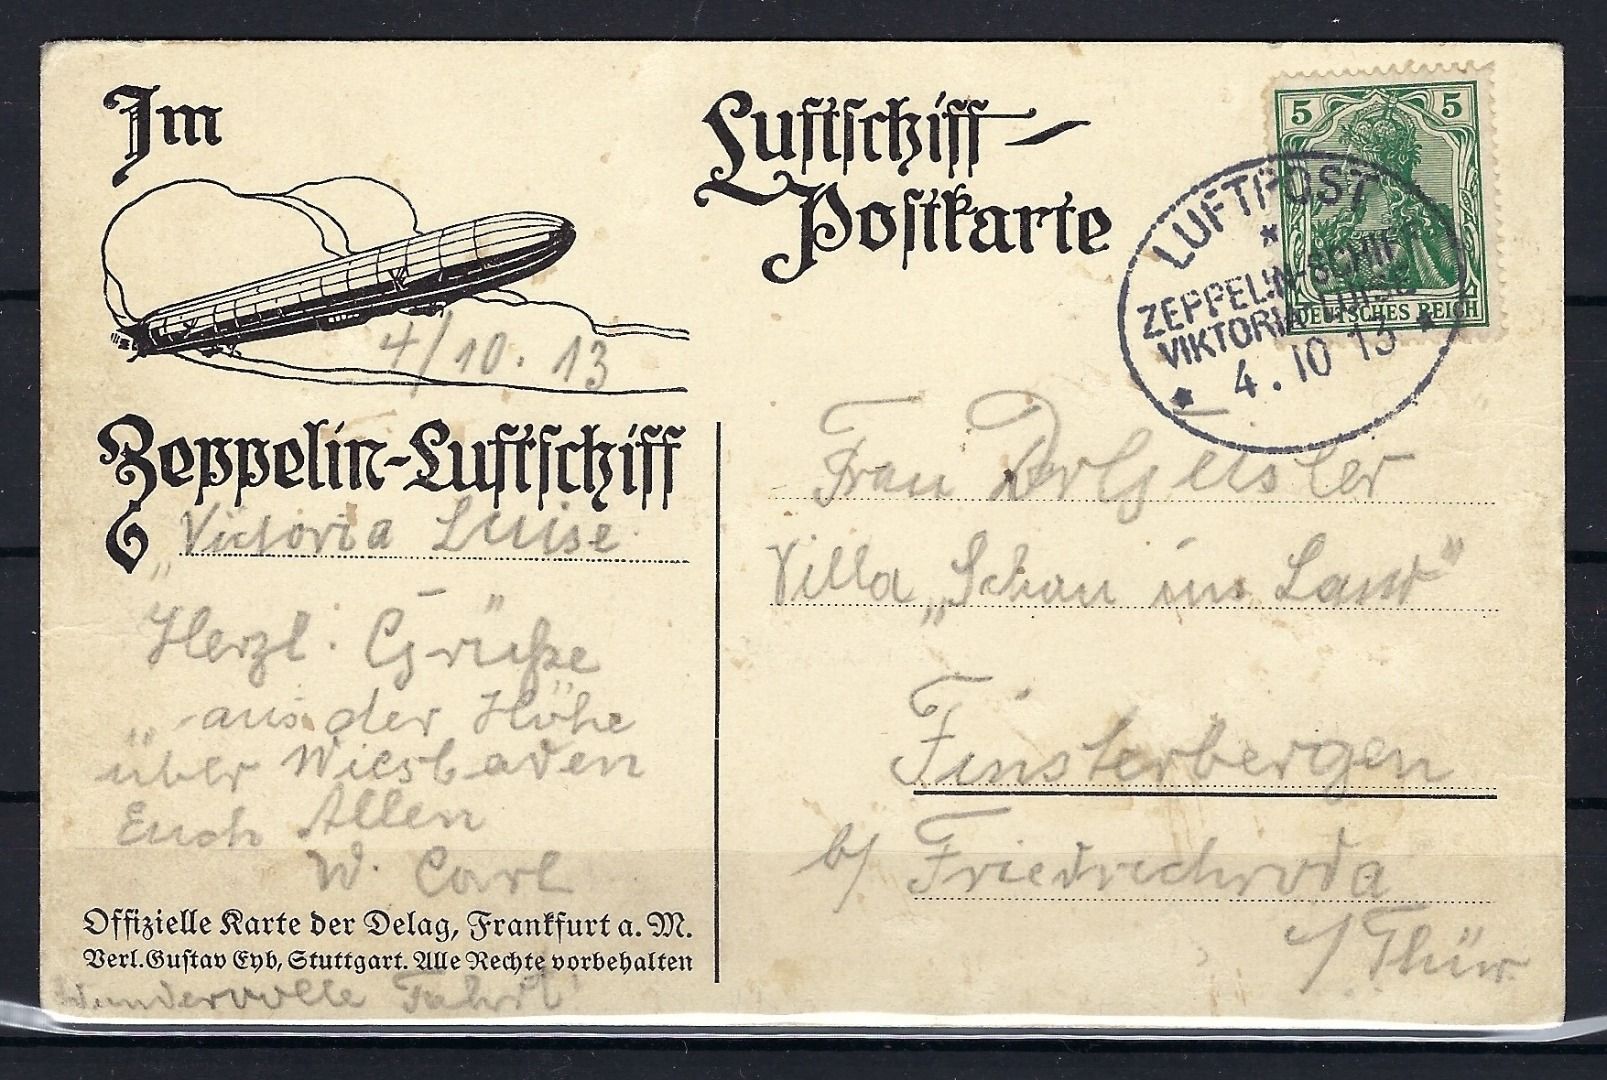 Im
4/10.13
Zeppelin-Luftschiff
"Victoria Luise"
Herzl. Grüße
aus der Höhe
über Wiesbaden
Euch Allen
W. Carl
Offizielle Karte der Delag, Frankfurt a. M.
Verl. Gustav Eyb, Stuttgart. Alle Rechte vorbehalten
Wundervolle Fahrt!
Luftschiff-
Postkarte
5 5
DEUTSCHES REICH
LUFTPOST
ZEPPELIN-SCHIFF
VIKTORIA LUISE
4.10 13
Frau
Villa „Schau ins Land"
Finsterbergen
b/ Friedrichroda
i/ Thür.